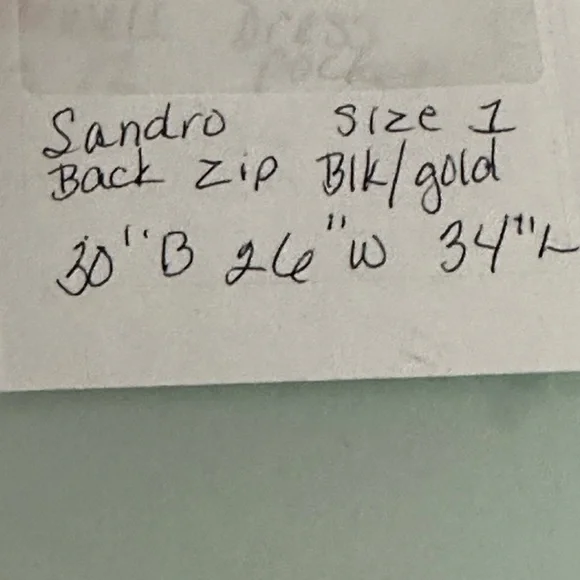 Dress
Sandro Size 1
Back Zip Blk/gold
30"B 26"W 34"L